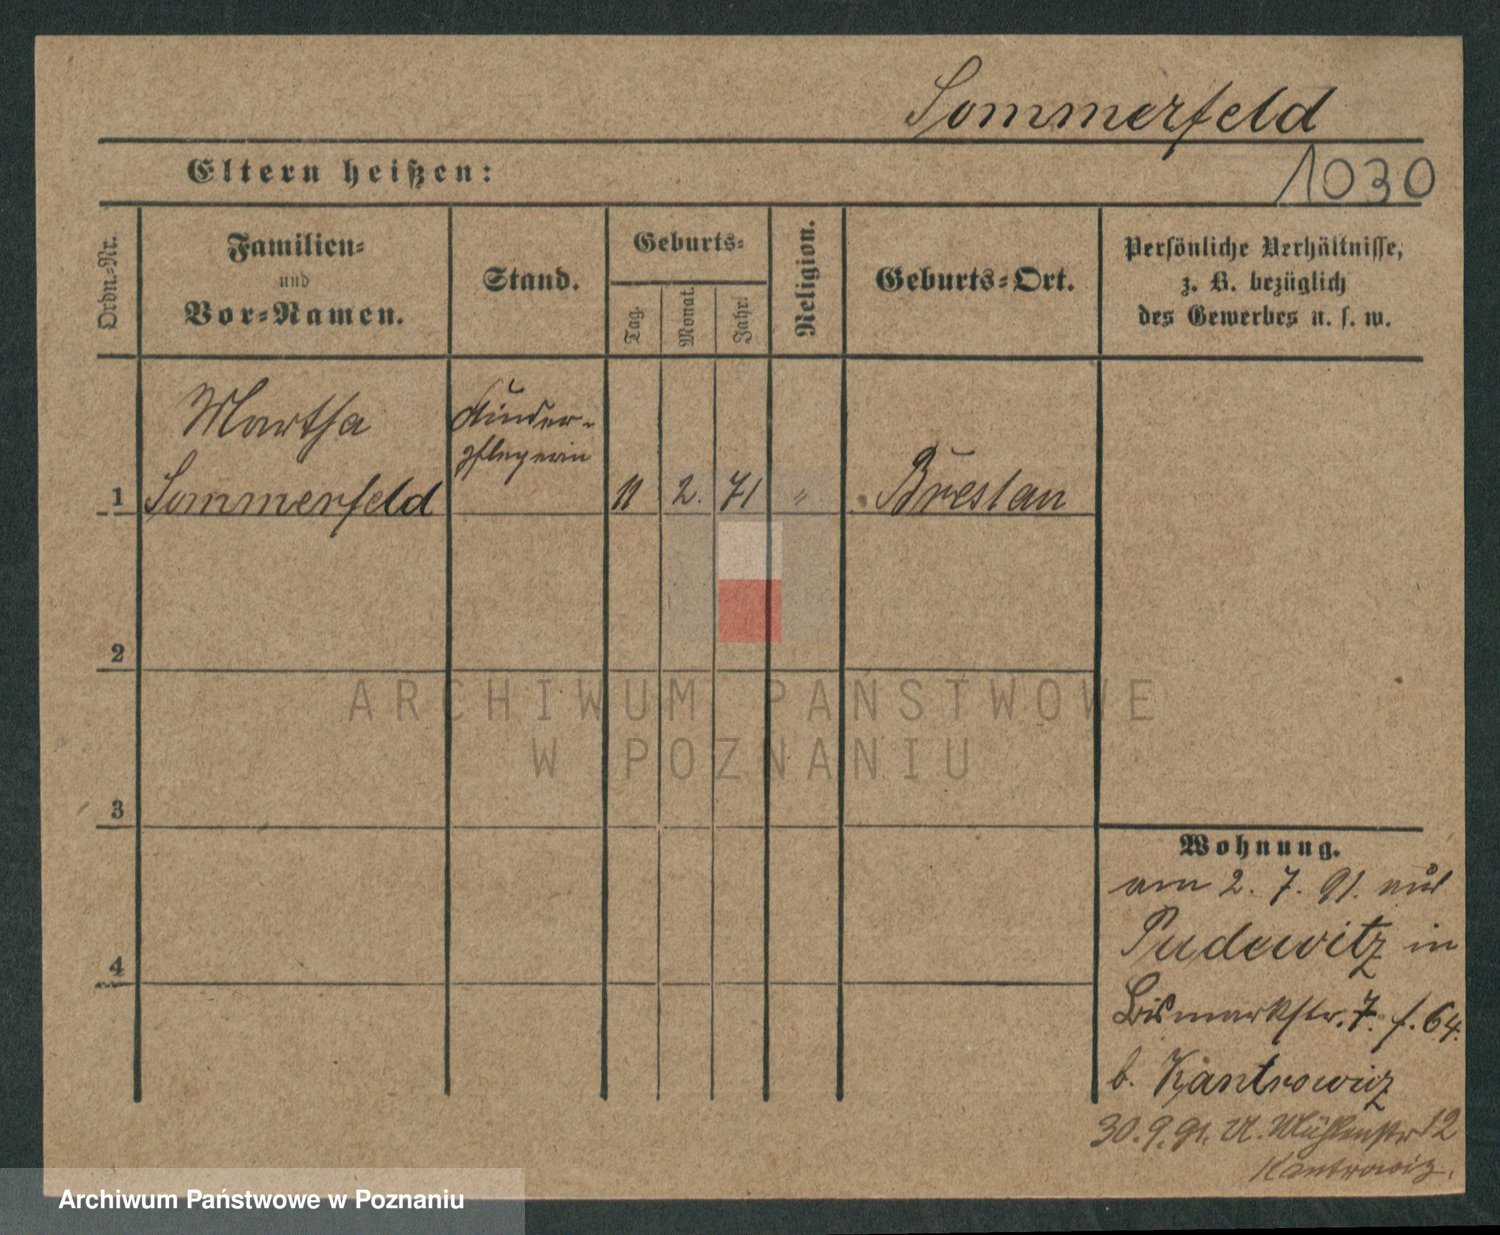 Sommerfeld
Eltern heißen:
1030
Ordn.-Nr.
Familien-
und
Vor-Namen.
Stand.
Geburts-
Tag.
Monat.
Jahr.
Religion.
Geburts-Ort.
Persönliche Verhältnisse,
z. B. bezüglich
des Gewerbes u. s. w.
Martha
Kinder-
pflegerin
1 Sommerfeld 11 2. 71 " Breslau
2
ARCHIWUM PAŃSTWOWE
W POZNANIU
3
Wohnung.
am 2. 7. 91. aus
Pudewitz in
4
Bismarkstr. 7. f. 64.
b. Kantrowicz
30. 9. 91. U. Mühlenstr 12
Kantrowicz.
Archiwum Państwowe w Poznaniu